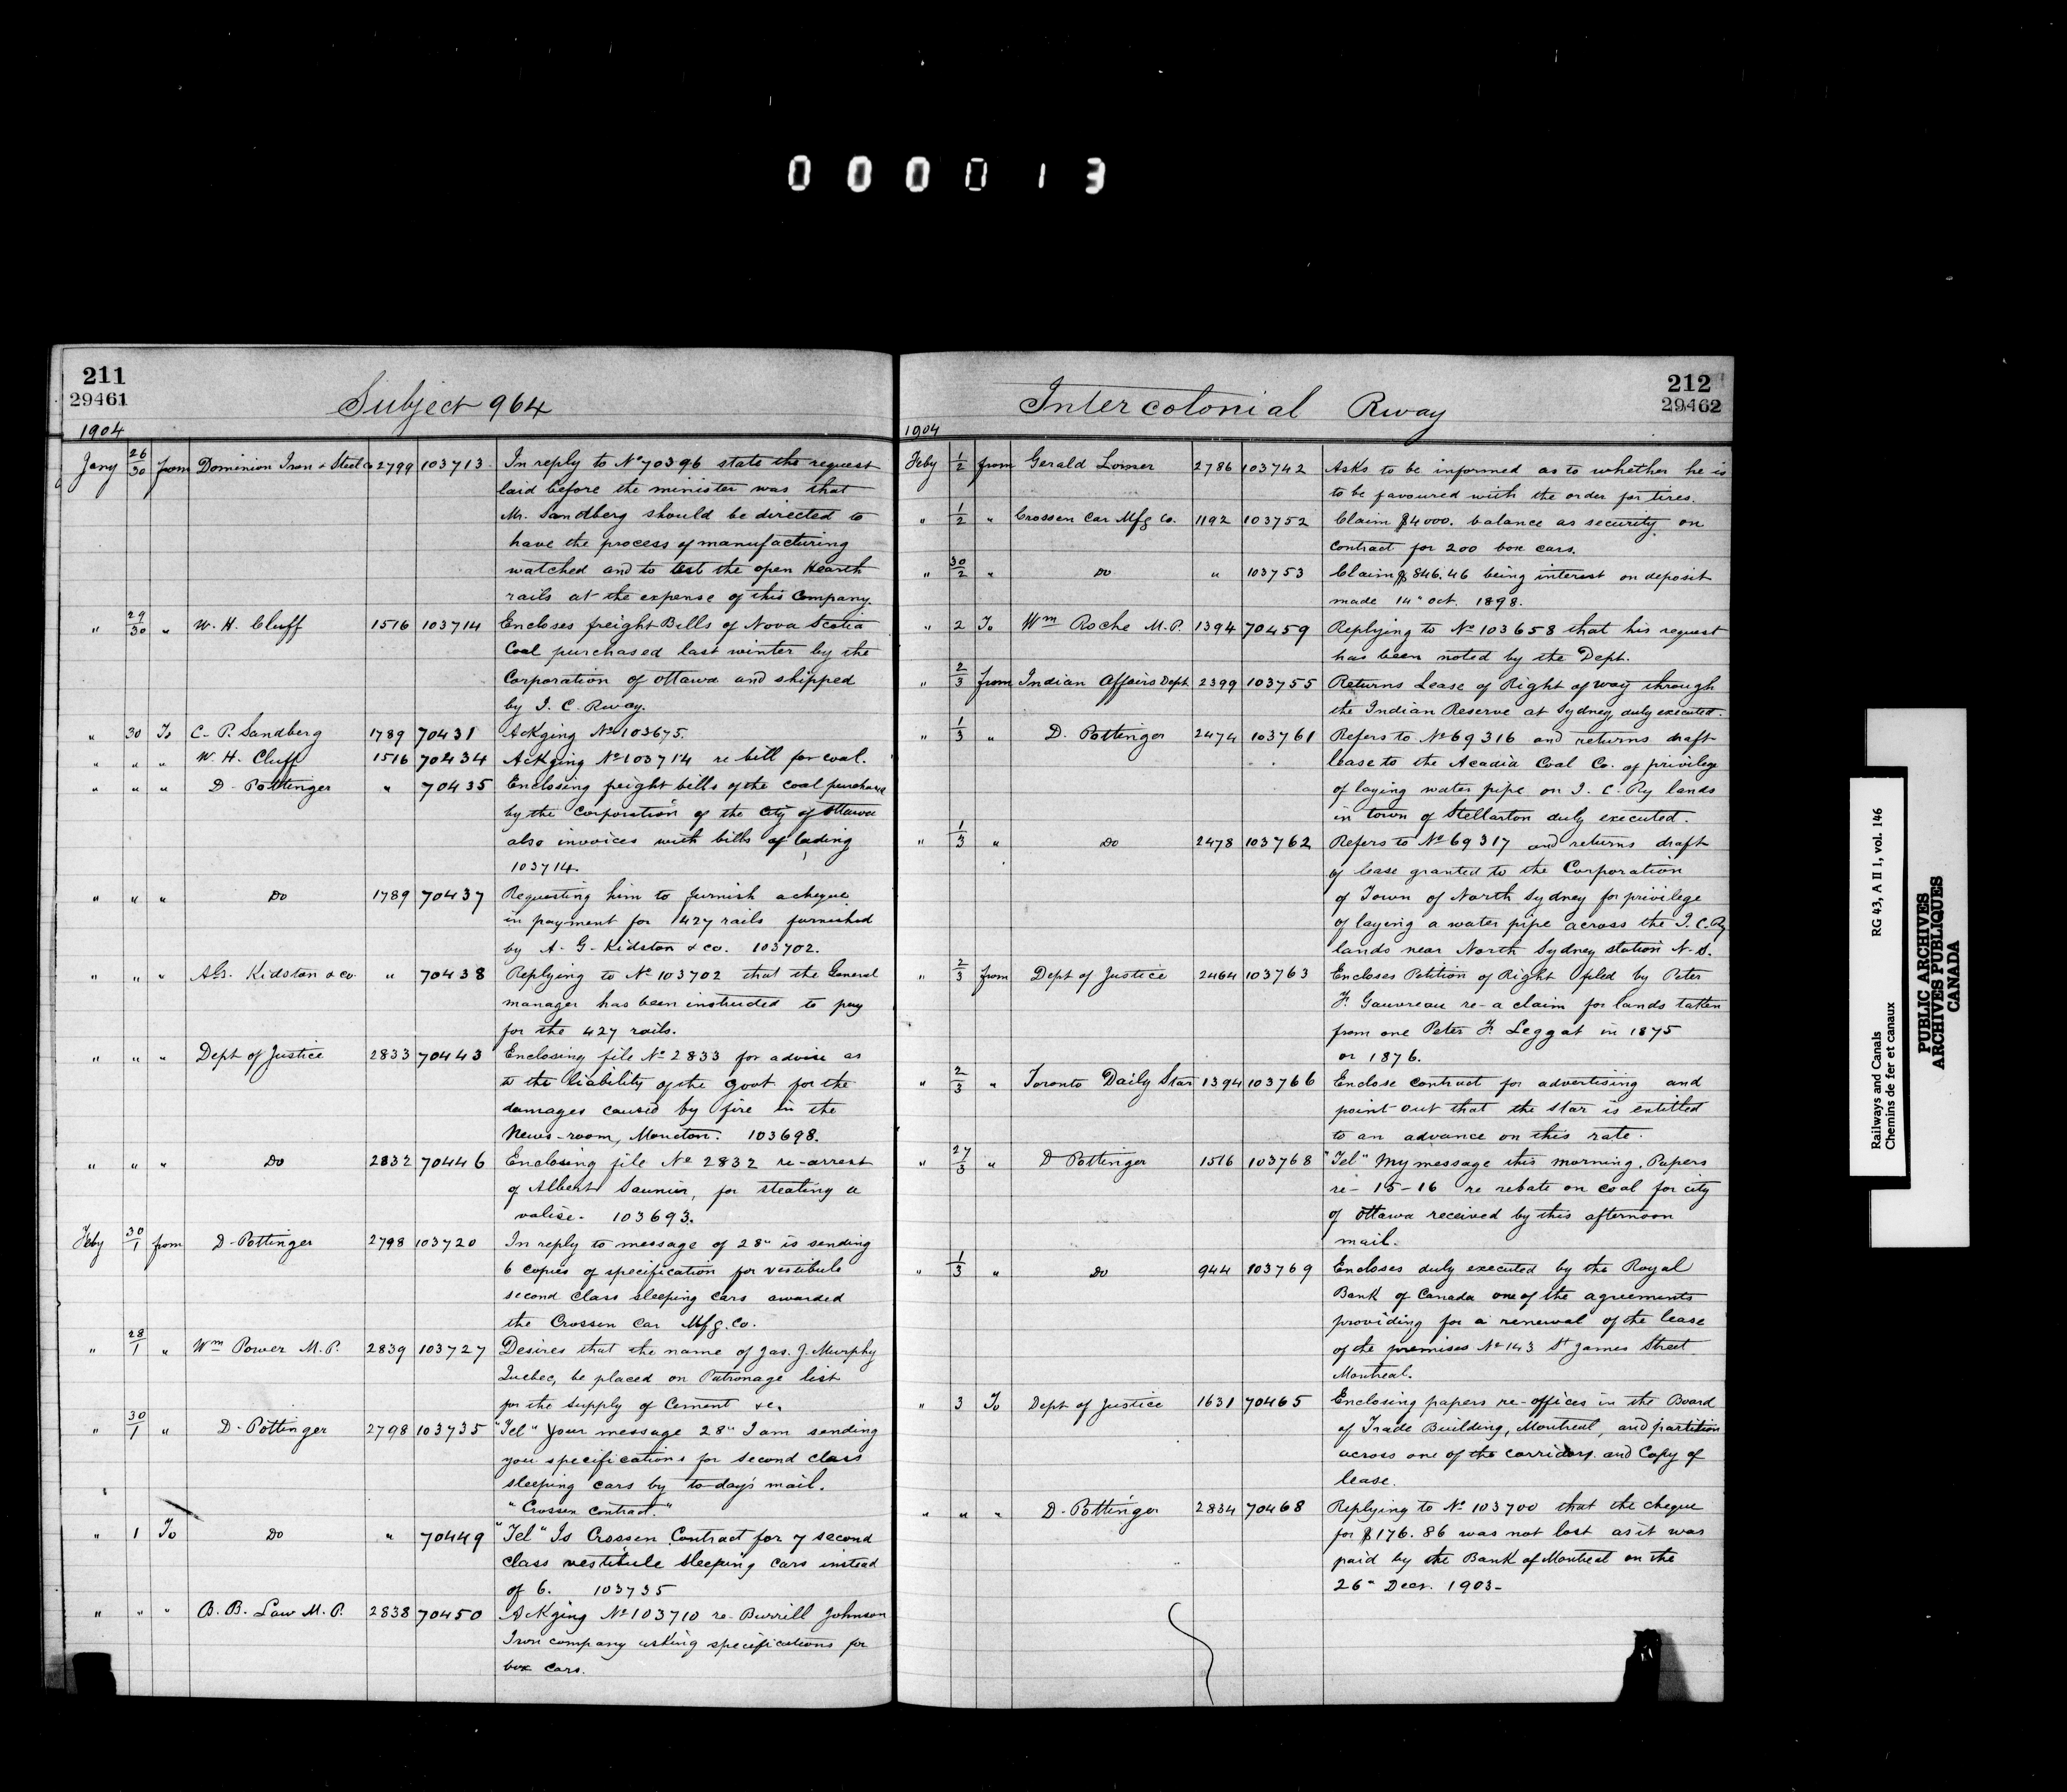 000013
211
29461
Subject 964
1904
Jany 26/30 from Dominion Iron & Steel Co 2799 103713 In reply to No 70396 state the request
laid before the minister was that
Mr. Sandberg should be directed to
have the process of manufacturing
watched and to test the open Hearth
rails at the expense of this Company.
" 29/30 " W. H. Cluff 1516 103714 Encloses freight Bills of Nova Scotia
Coal purchased last winter by the
Corporation of Ottawa and shipped
by I. C. Rway.
" 30 To C. P. Sandberg 1789 70431 Ackging No 103675.
" " " W. H. Cluff 1516 70434 Ackging No 103714 re bill for coal.
" " " D. Pottinger " 70435 Enclosing freight bills of the coal purchase
by the Corporation of the City of Ottawa
also invoices with bills of lading
103714.
" " " Do 1789 70437 Requesting him to furnish a cheque
in payment for 427 rails furnished
by A. G. Kidston & co. 103702.
" " " A.G. Kidston & co " 70438 Replying to No 103702 that the General
manager has been instructed to pay
for the 427 rails.
" " " Dept of Justice 2833 70443 Enclosing file No 2833 for advise as
to the liability of the Govt for the
damages caused by fire in the
News-room, Moncton. 103698.
" " " Do 2832 70446 Enclosing file No 2832 re-arrest
of Albert Saunier, for stealing a
valise. 103693.
Feby 30/1 from D. Pottinger 2798 103720 In reply to message of 28" is sending
6 copies of specification for vestibule
second class sleeping cars awarded
the Crossen Car Mfg. Co.
" 28/1 " Wm Power M.P. 2839 103727 Desires that the name of Jas. J. Murphy
Quebec, be placed on Patronage list
for the supply of Cement &c.
" 30/1 " D. Pottinger 2798 103735 "Tel" Your message 28" I am sending
you specifications for second class
sleeping cars by to-day's mail.
"Crossen contract."
" 1 To Do " 70449 "Tel" Is Crossen Contract for 7 second
class vestibule sleeping cars instead
of 6. 103735
" " " B. B. Law M.P. 2838 70450 Ackging No 103710 re- Burrill Johnson
Iron company asking specifications for
box cars.
212
29462
Intercolonial Rway
1904
Feby 1/2 from Gerald Lomer 2786 103742 Asks to be informed as to whether he is
to be favoured with the order for tires.
" 1/2 " Crossen Car Mfg Co. 1192 103752 Claim $4000. balance as security on
contract for 200 box cars.
" 30/2 " Do " 103753 Claim $846.46 being interest on deposit
made 14" Oct. 1898.
" 2 To Wm Roche M.P. 1394 70459 Replying to No 103658 that his request
has been noted by the Dept.
" 2/3 from Indian Affairs Dept 2399 103755 Returns Lease of Right of way through
the Indian Reserve at Sydney, duly executed.
" 1/3 " D. Pottinger 2474 103761 Refers to No 69316 and returns draft
lease to the Acadia Coal Co. of privilege
of laying water pipe on I. C. Ry lands
in town of Stellarton duly executed.
" 1/3 " Do 2478 103762 Refers to No 69317 and returns draft
of lease granted to the Corporation
of Town of North Sydney for privilege
of laying a water pipe across the I. C. Ry
lands near North Sydney station N.S.
" 2/3 from Dept of Justice 2464 103763 Encloses Petition of Right filed by Peter
F. Gauvreau re- a claim for lands taken
from one Peter F. Leggat in 1875
or 1876.
" 2/3 " Toronto Daily Star 1394 103766 Enclose contract for advertising and
point out that the Star is entitled
to an advance on this rate.
" 27/3 " D Pottinger 1516 103768 "Tel" My message this morning. Papers
re- 15-16 re rebate on coal for city
of Ottawa received by this afternoon
mail.
" 1/3 " Do 944 103769 Encloses duly executed by the Royal
Bank of Canada one of the agreements
providing for a renewal of the lease
of the premises No 143 St James Street
Montreal.
" 3 To Dept of Justice 1631 70465 Enclosing papers re-offices in the Board
of Trade Building, Montreal, and partition
across one of the corridors and Copy of
lease.
" " " D. Pottinger 2834 70468 Replying to No 103700 that the cheque
for $176.86 was not lost as it was
paid by the Bank of Montreal on the
26" Decr. 1903-
Railways and Canals RG 43, A II 1, vol. 146
Chemins de fer et canaux
PUBLIC ARCHIVES
ARCHIVES PUBLIQUES
CANADA